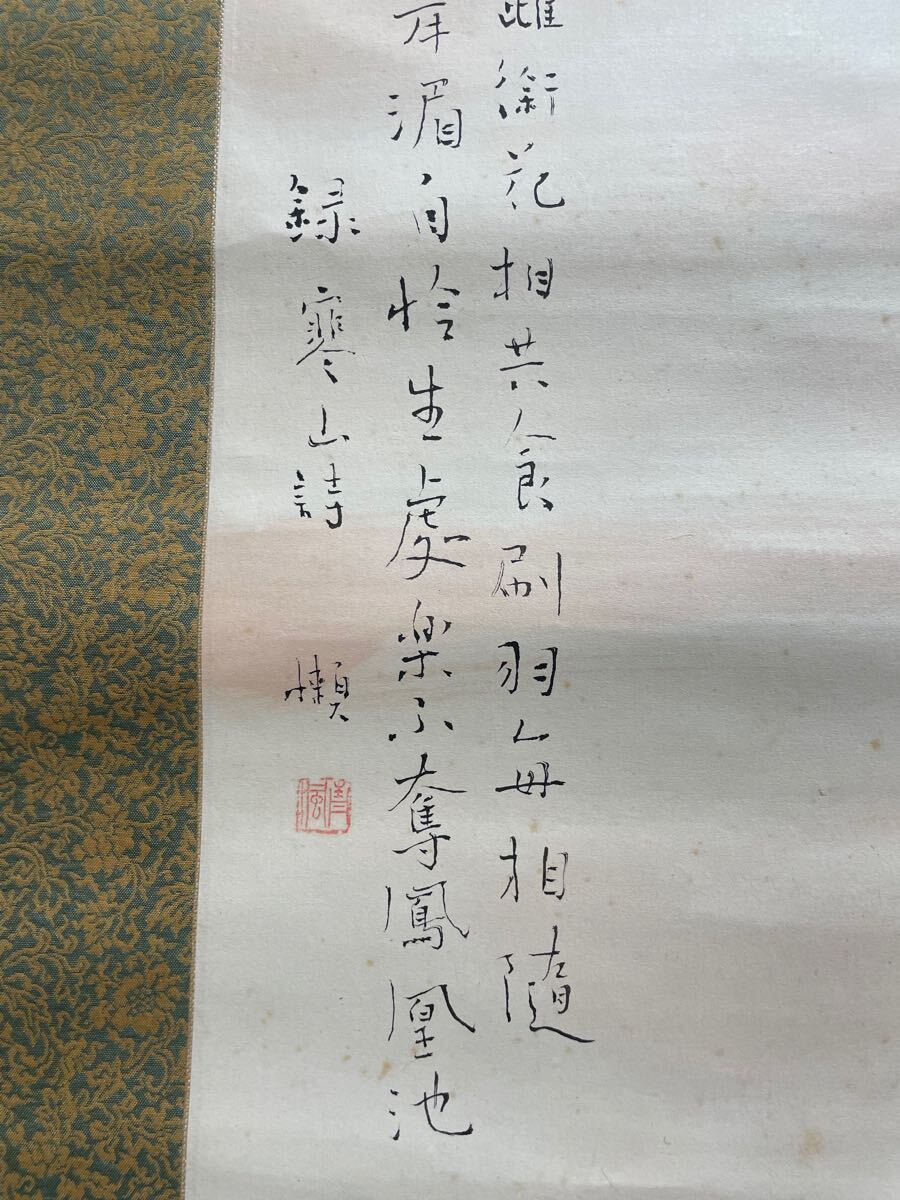 雌銜花相共食刷羽每相隨
岸湄自怜生處楽不奪鳳凰池
録寒山詩　懶